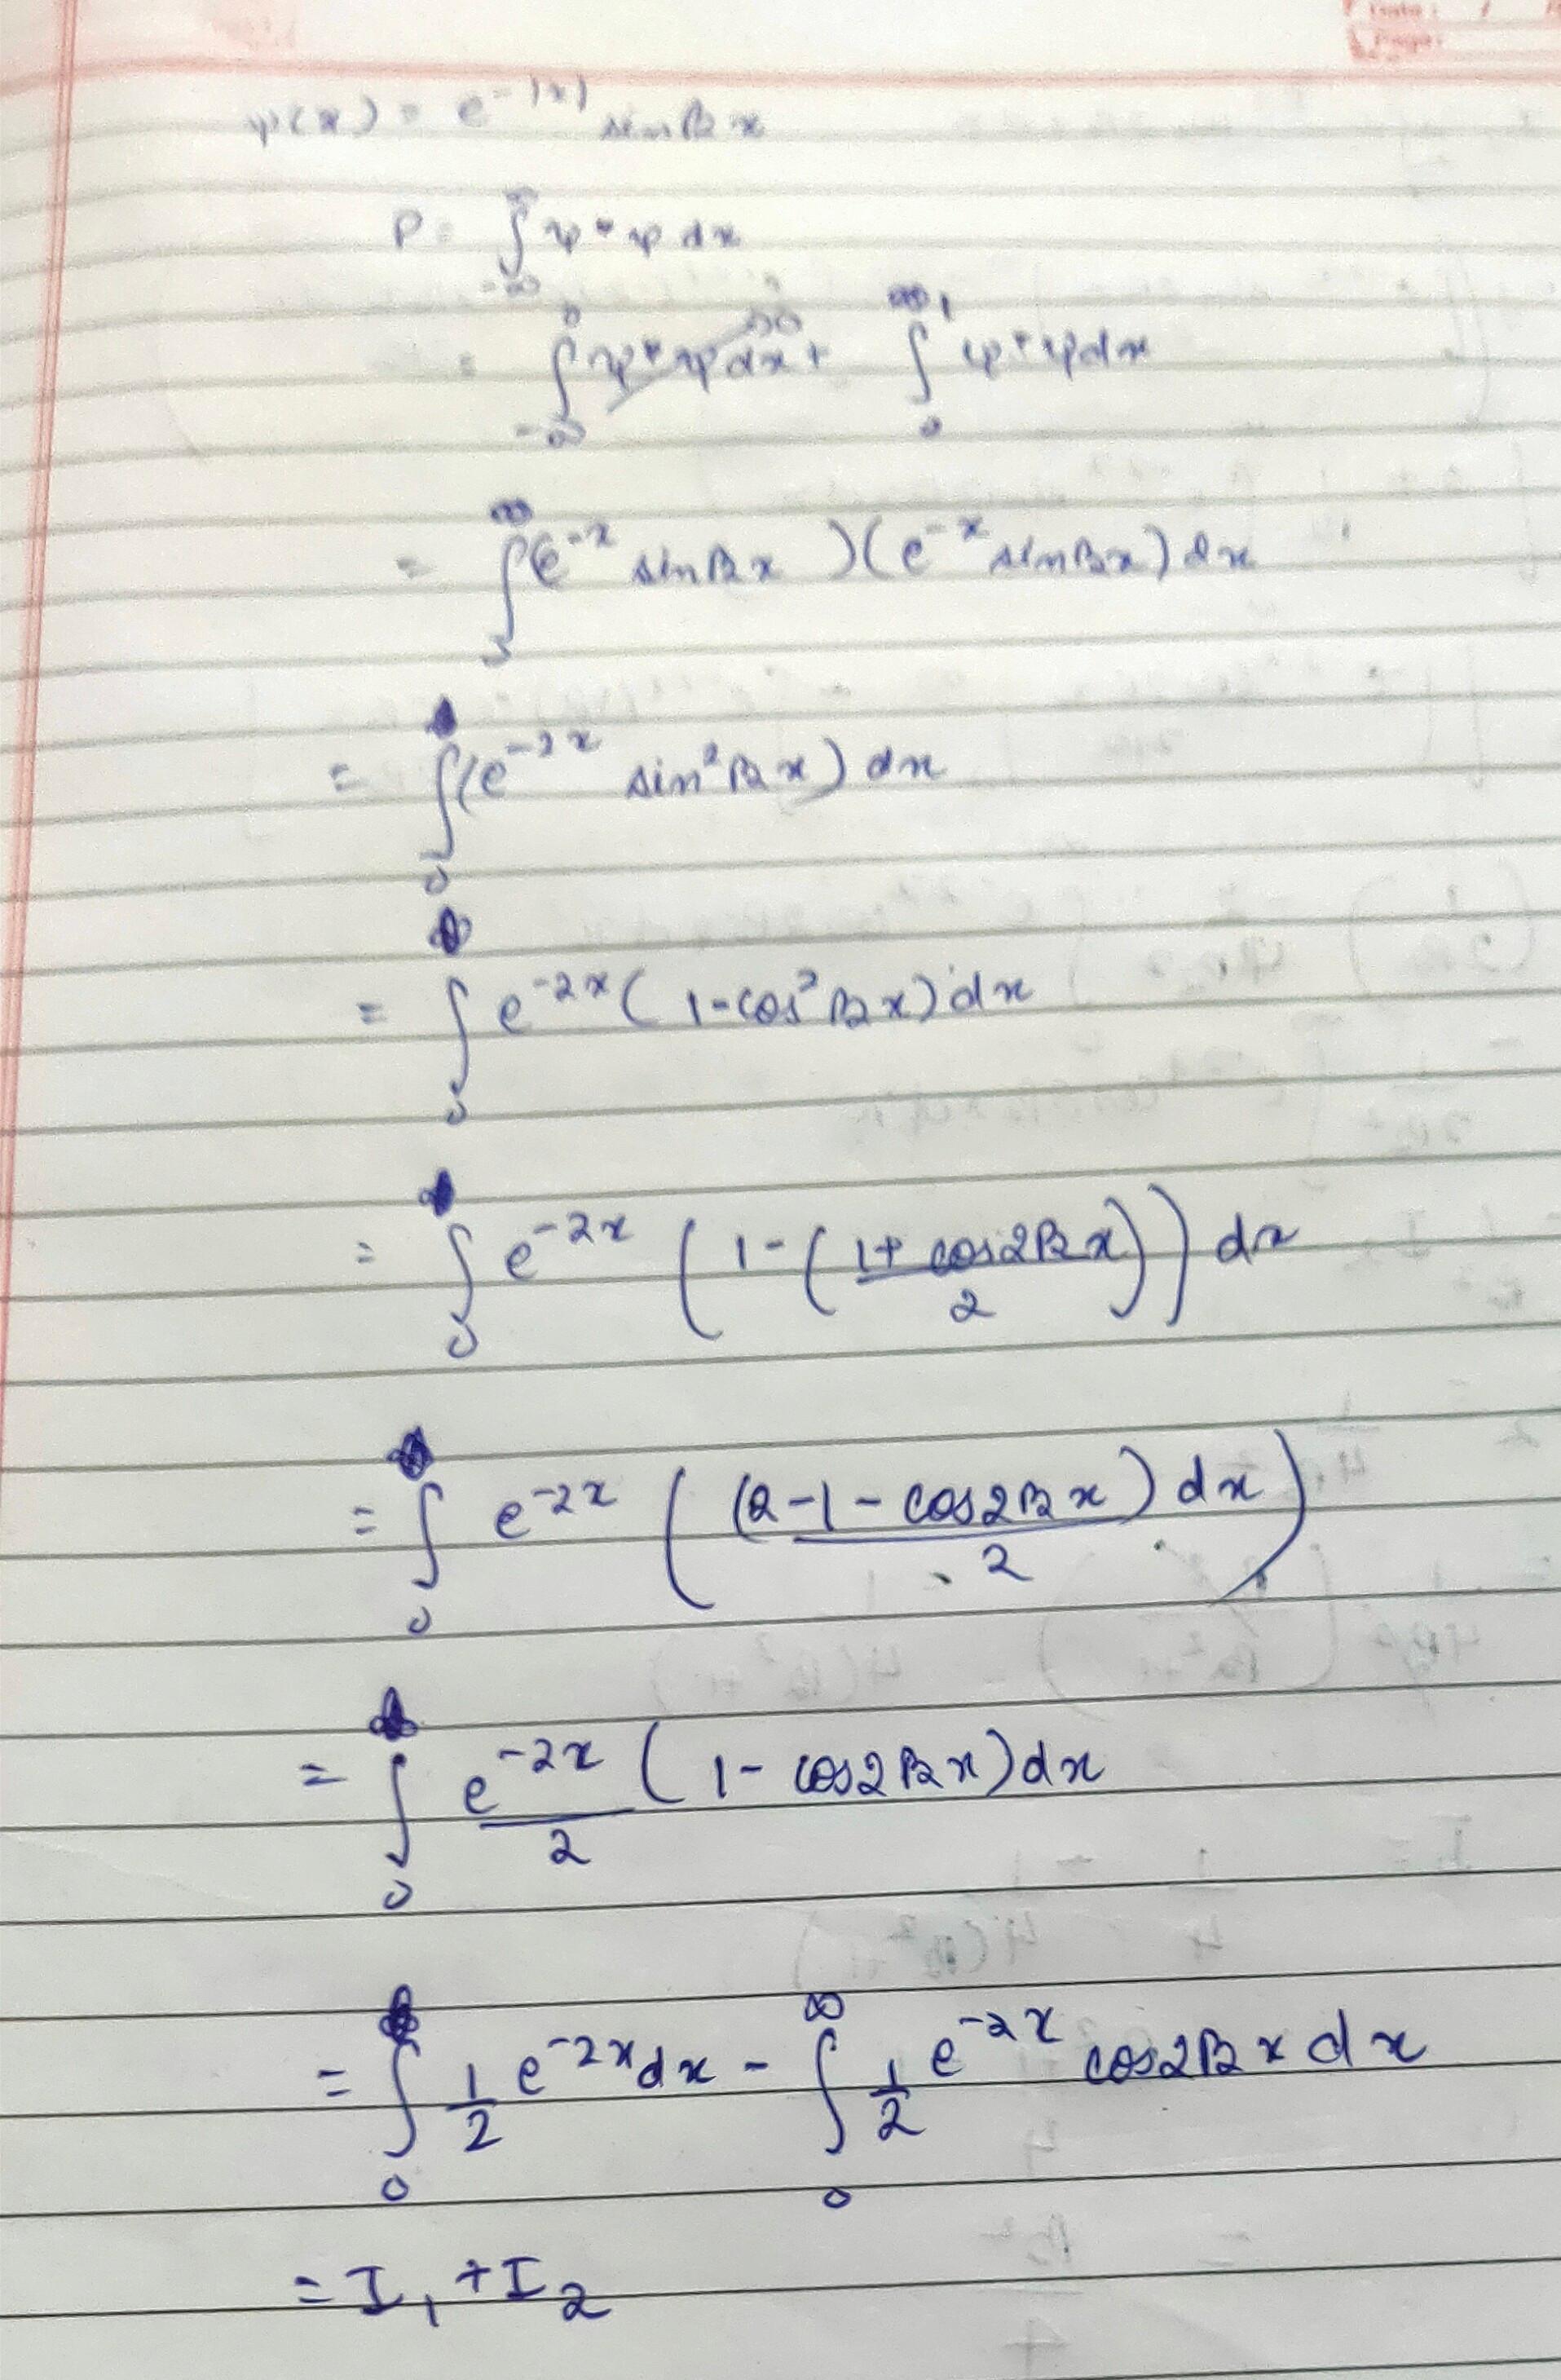 Date :
Page:
ψ(x) = e^-|x| sin βx
P = ∫_-∞^∞ ψ*ψ dx
= ∫_-∞^0 ψ*ψ dx + ∫_0^∞ ψ*ψ dx
= ∫_0^∞ (e^-x sin βx)(e^-x sin βx) dx
= ∫_0 (e^-2x sin² βx) dx
= ∫_0 e^-2x (1-cos² βx) dx
= ∫_0 e^-2x (1-(1+cos2βx)/2) dx
= ∫_0 e^-2x ((2-1-cos2βx) dx/2)
= ∫_0 e^-2x/2 (1-cos2βx) dx
= ∫_0 1/2 e^-2x dx - ∫_0^∞ 1/2 e^-2x cos2βx dx
= I₁ + I₂